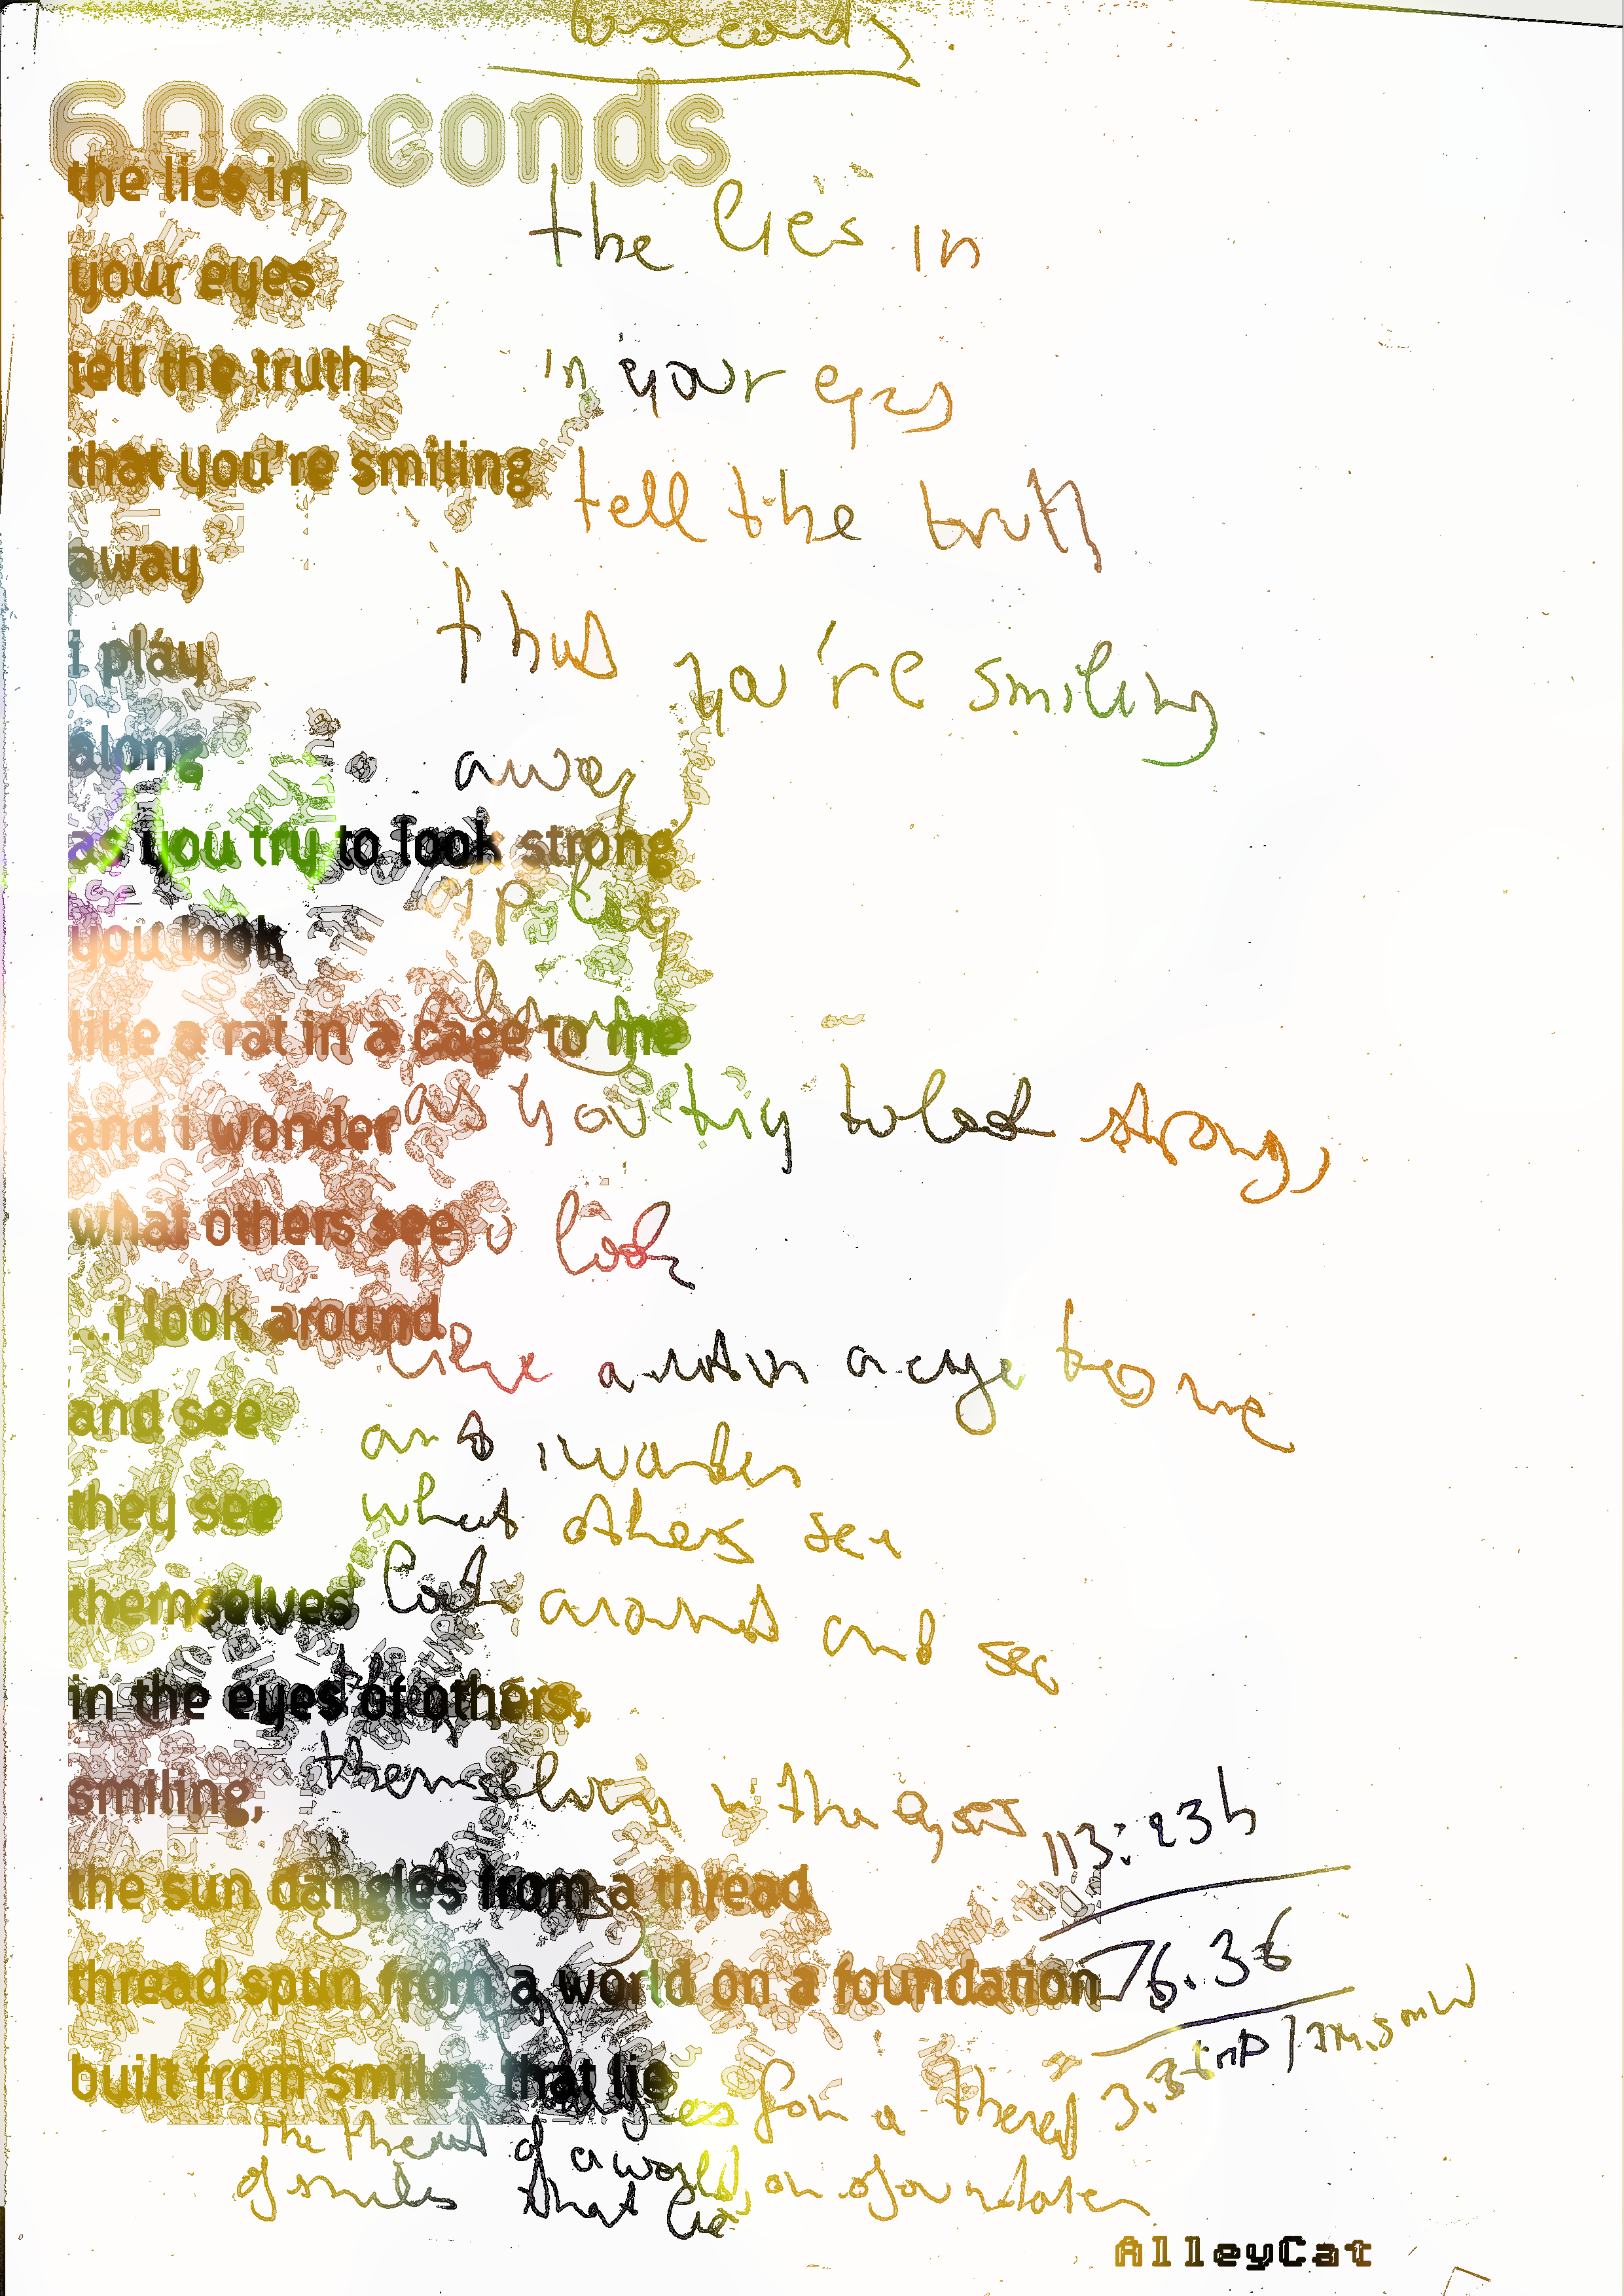 60 seconds
60seconds
the lies in
your eyes
tell the truth
that you're smiling
away
i play
along
as you try to look strong
you look
like a rat in a cage to me
and i wonder
what others see
...i look around
and see
they see
themselves
in the eyes of others,
smiling,
the sun dangles from a thread
thread spun from a world on a foundation
built from smiles that lie
the lies in
in your eyes
tell the truth
that you're smiling
away
play
along
as you try to look strong,
look
like a rat in a cage to me
and i wonder
what others see
look around and see
themselves in the eyes
113:23h
76.36
from a thread
the thread of a world, on a foundation
of smiles that lie
AlleyCat